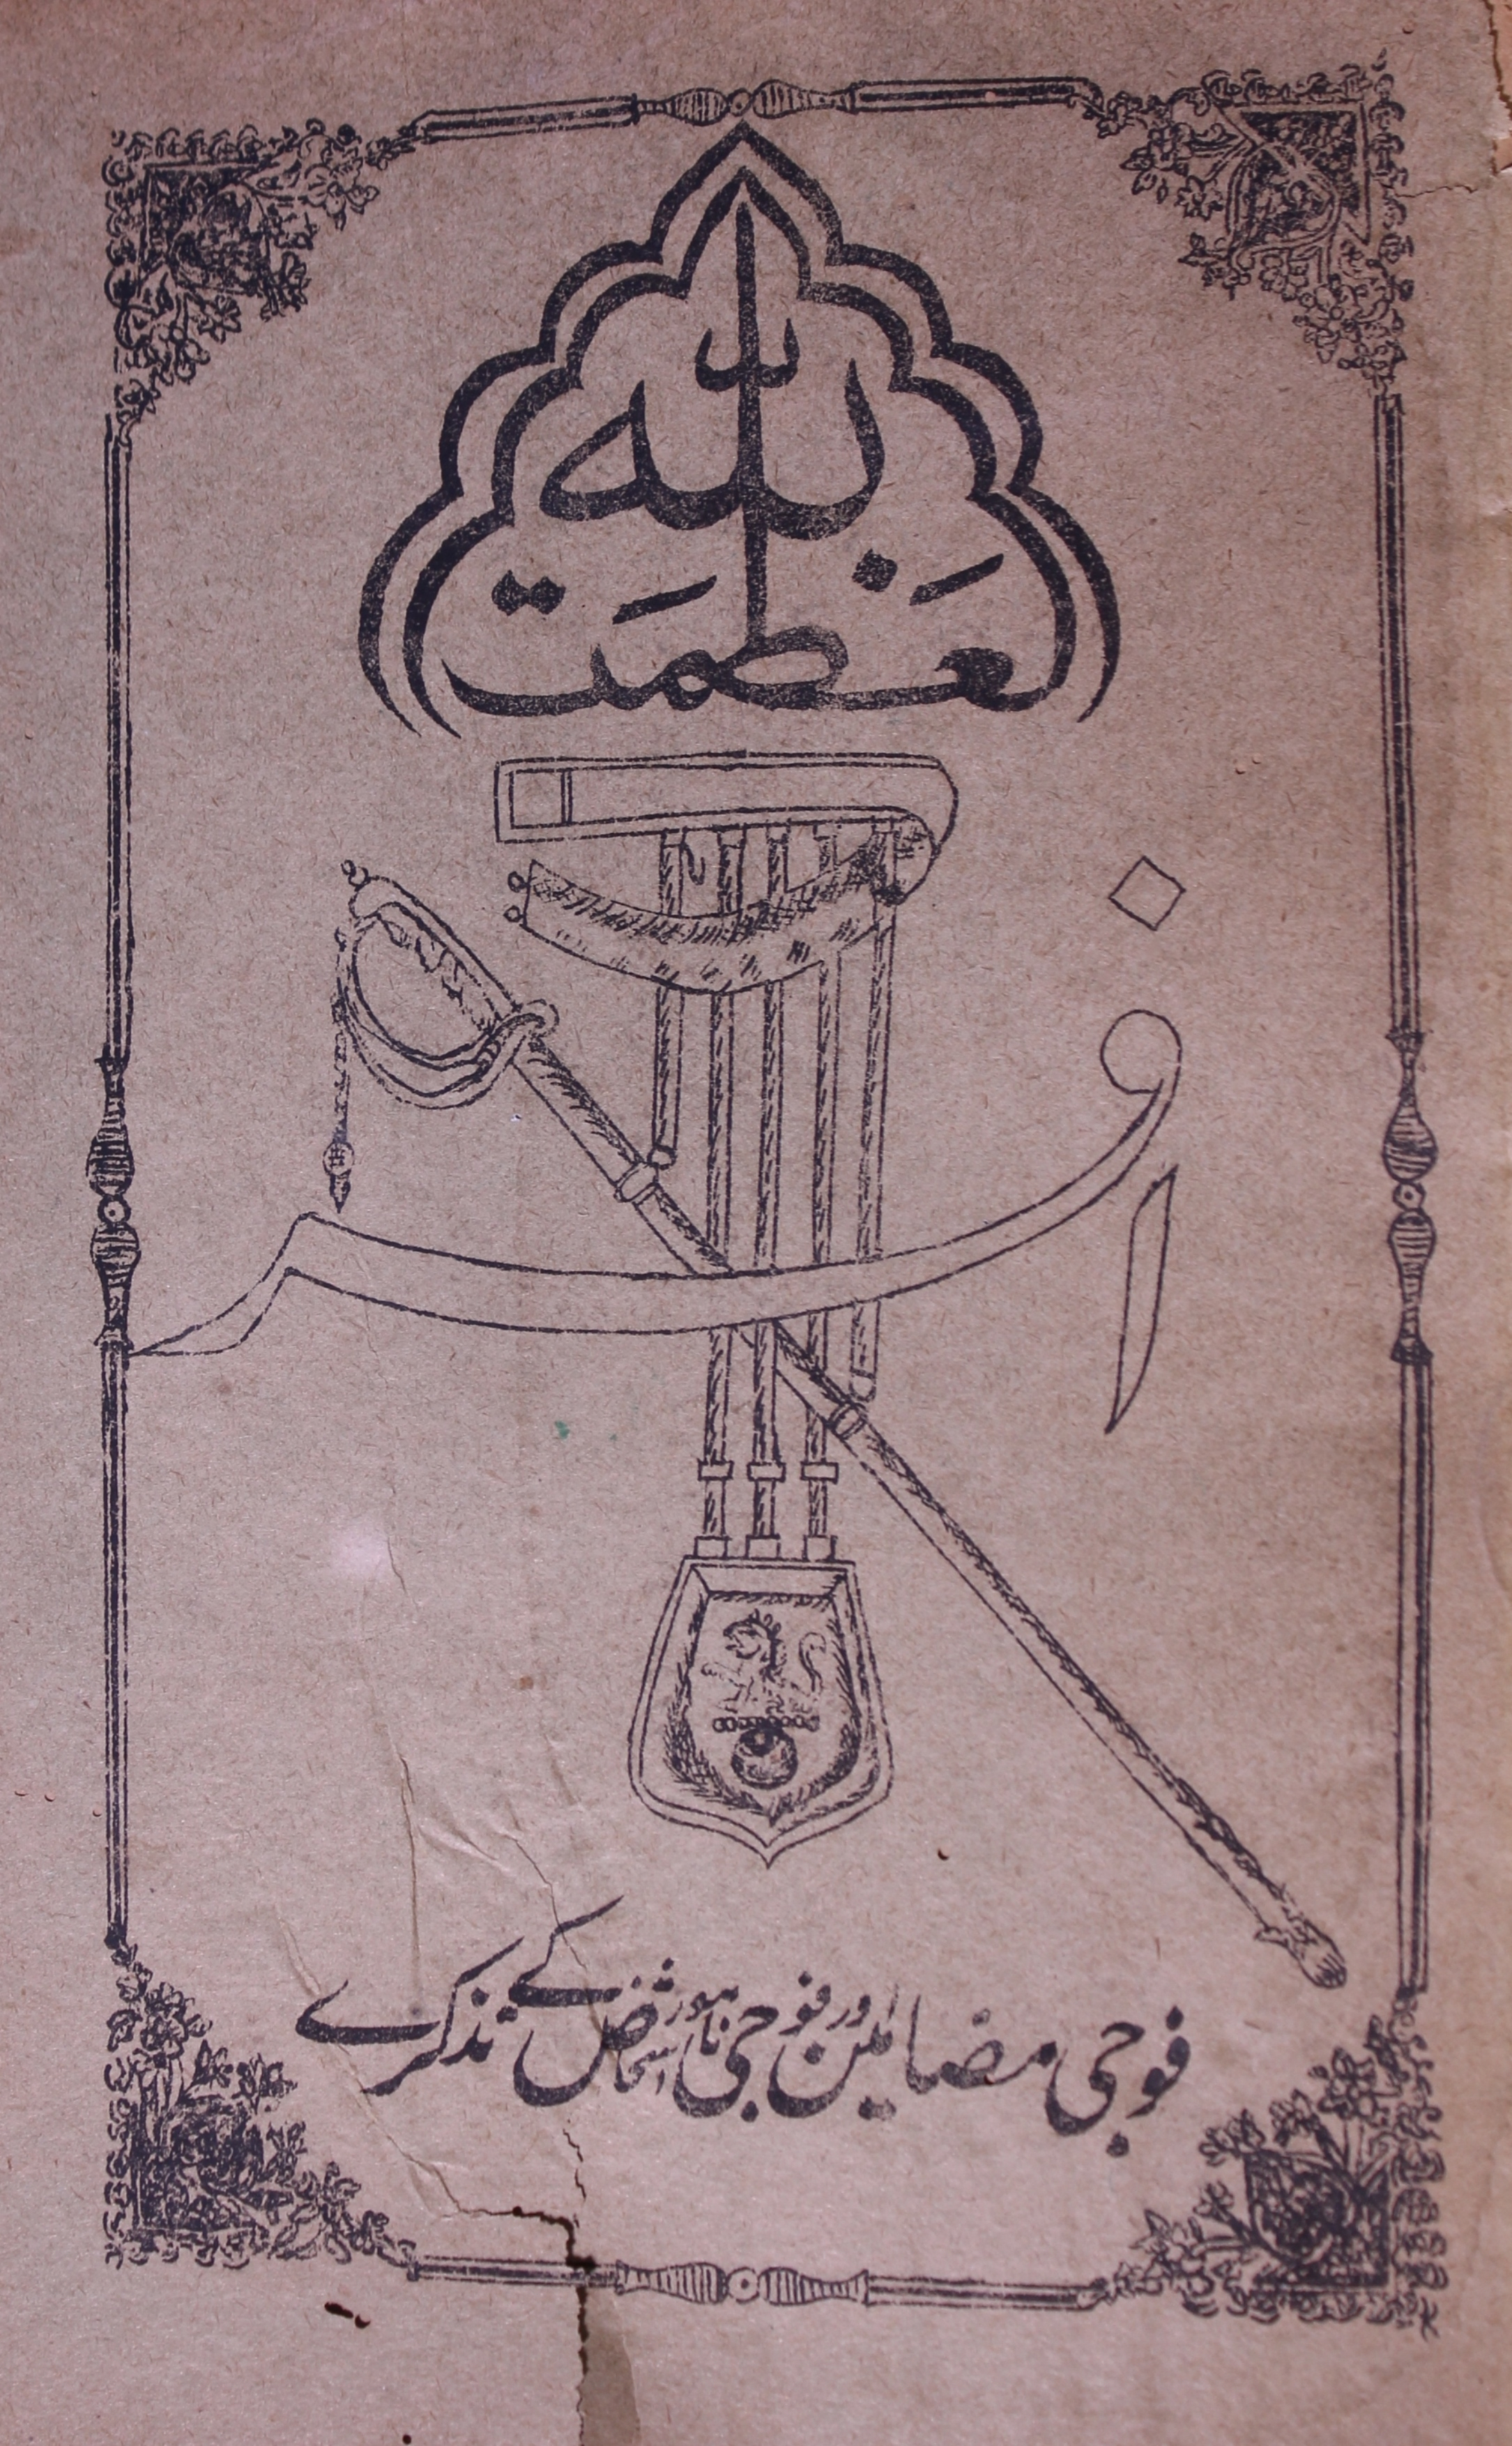 العظمت لله
افسر
فوجی مضامین اور فوجی نامور اشخاص کے تذکرے